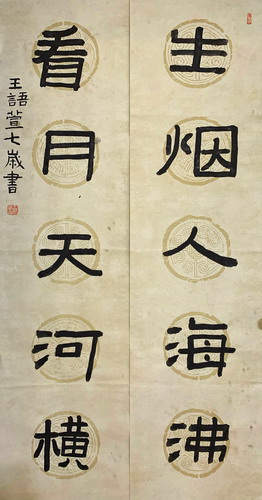 生烟人海沸
看月天河横
王語萱七歲書